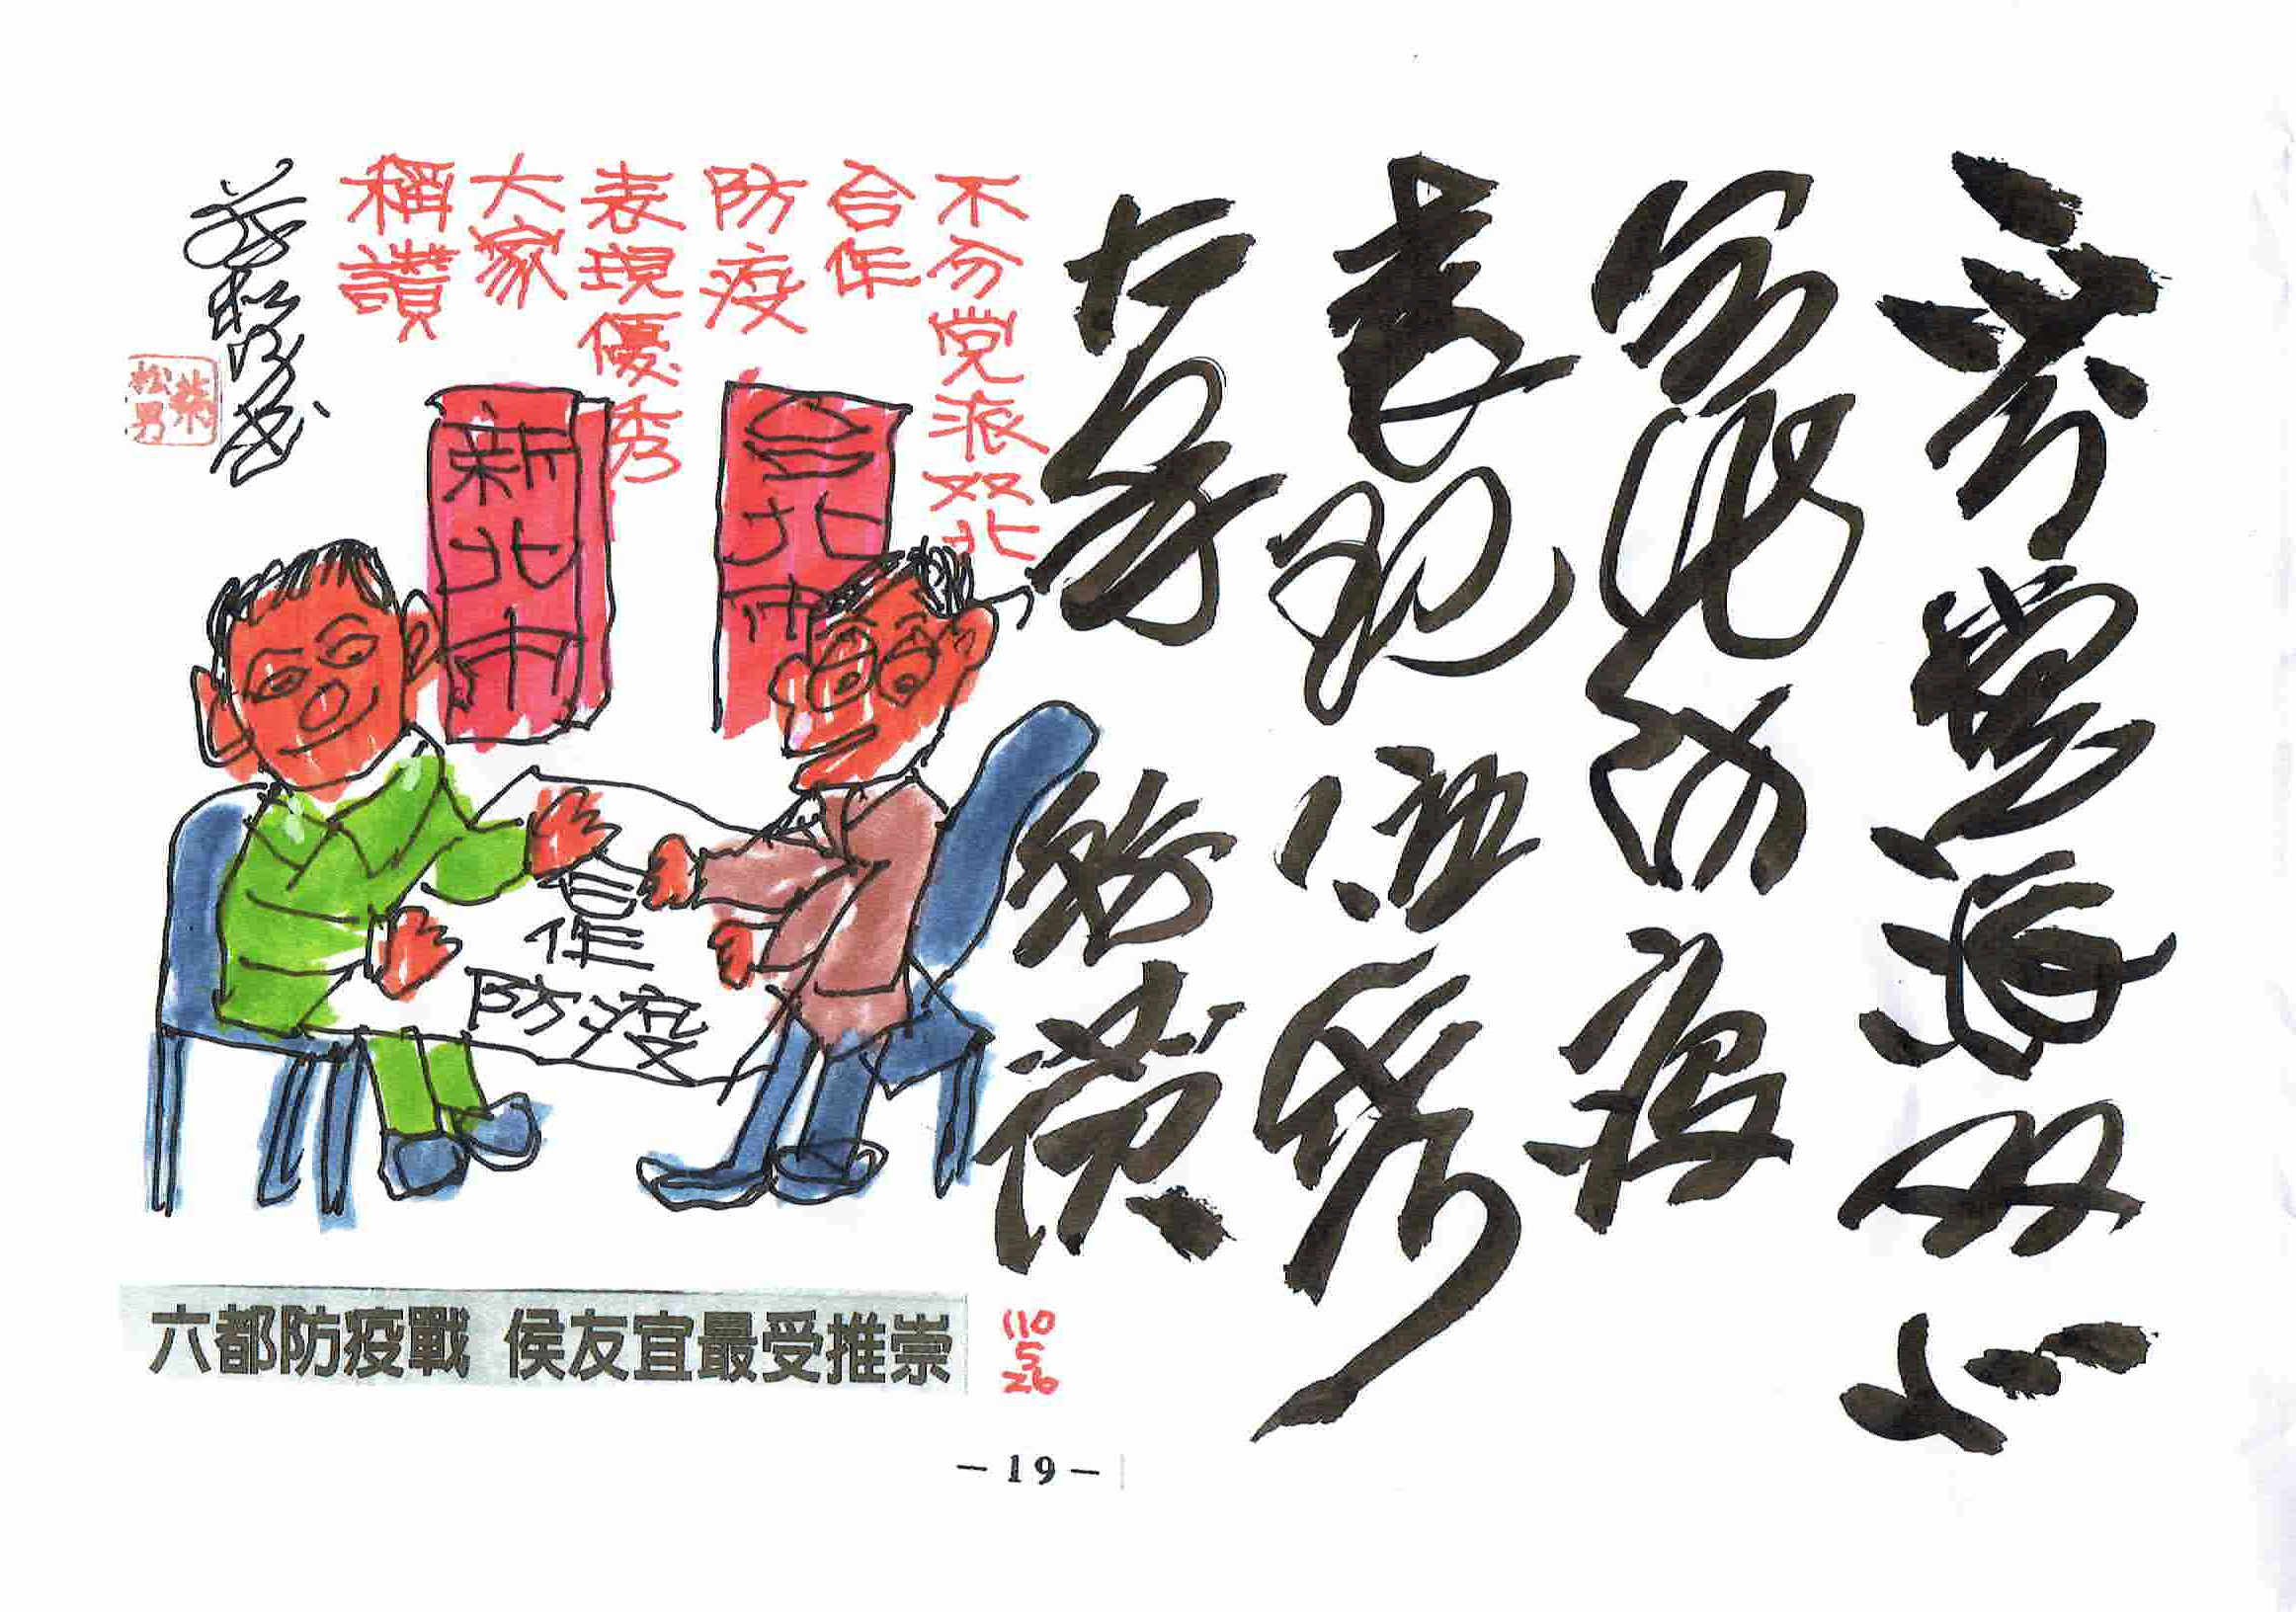 不分黨派双北
合作防疫
表現優秀
大家稱讚
不分党派双北
合作
防疫
表現優秀
大家
稱讚
松男
新北市
台北市
合作
防疫
六都防疫戰 侯友宜最受推崇
110
5
26
— 19 —